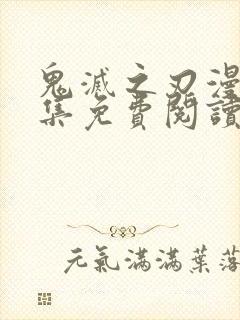 鬼滅之刃漫
集免費閱讀
元氣滿滿葉落